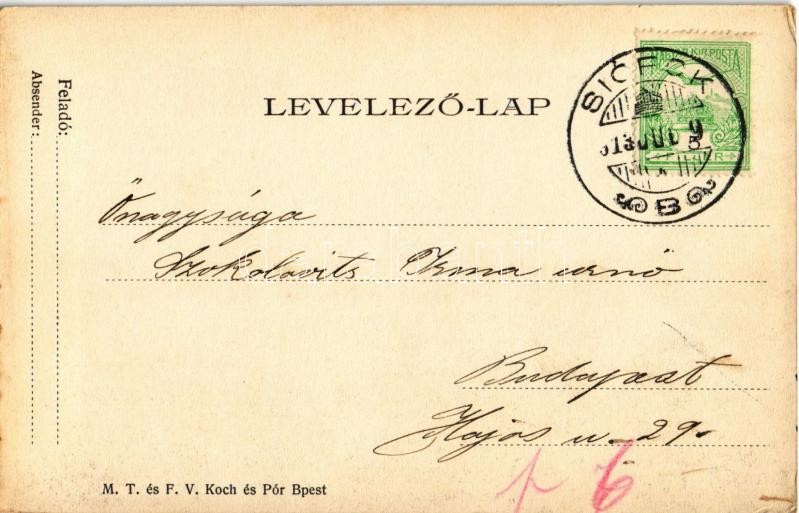 Feladó:
Absender:
LEVELEZŐ-LAP
SIÓFOK
913 JUL 9
5
B
Önagysága
Szokolovits Irma urnő
Budapest
Hajós u. 29.
M. T. és F. V. Koch és Pór Bpest